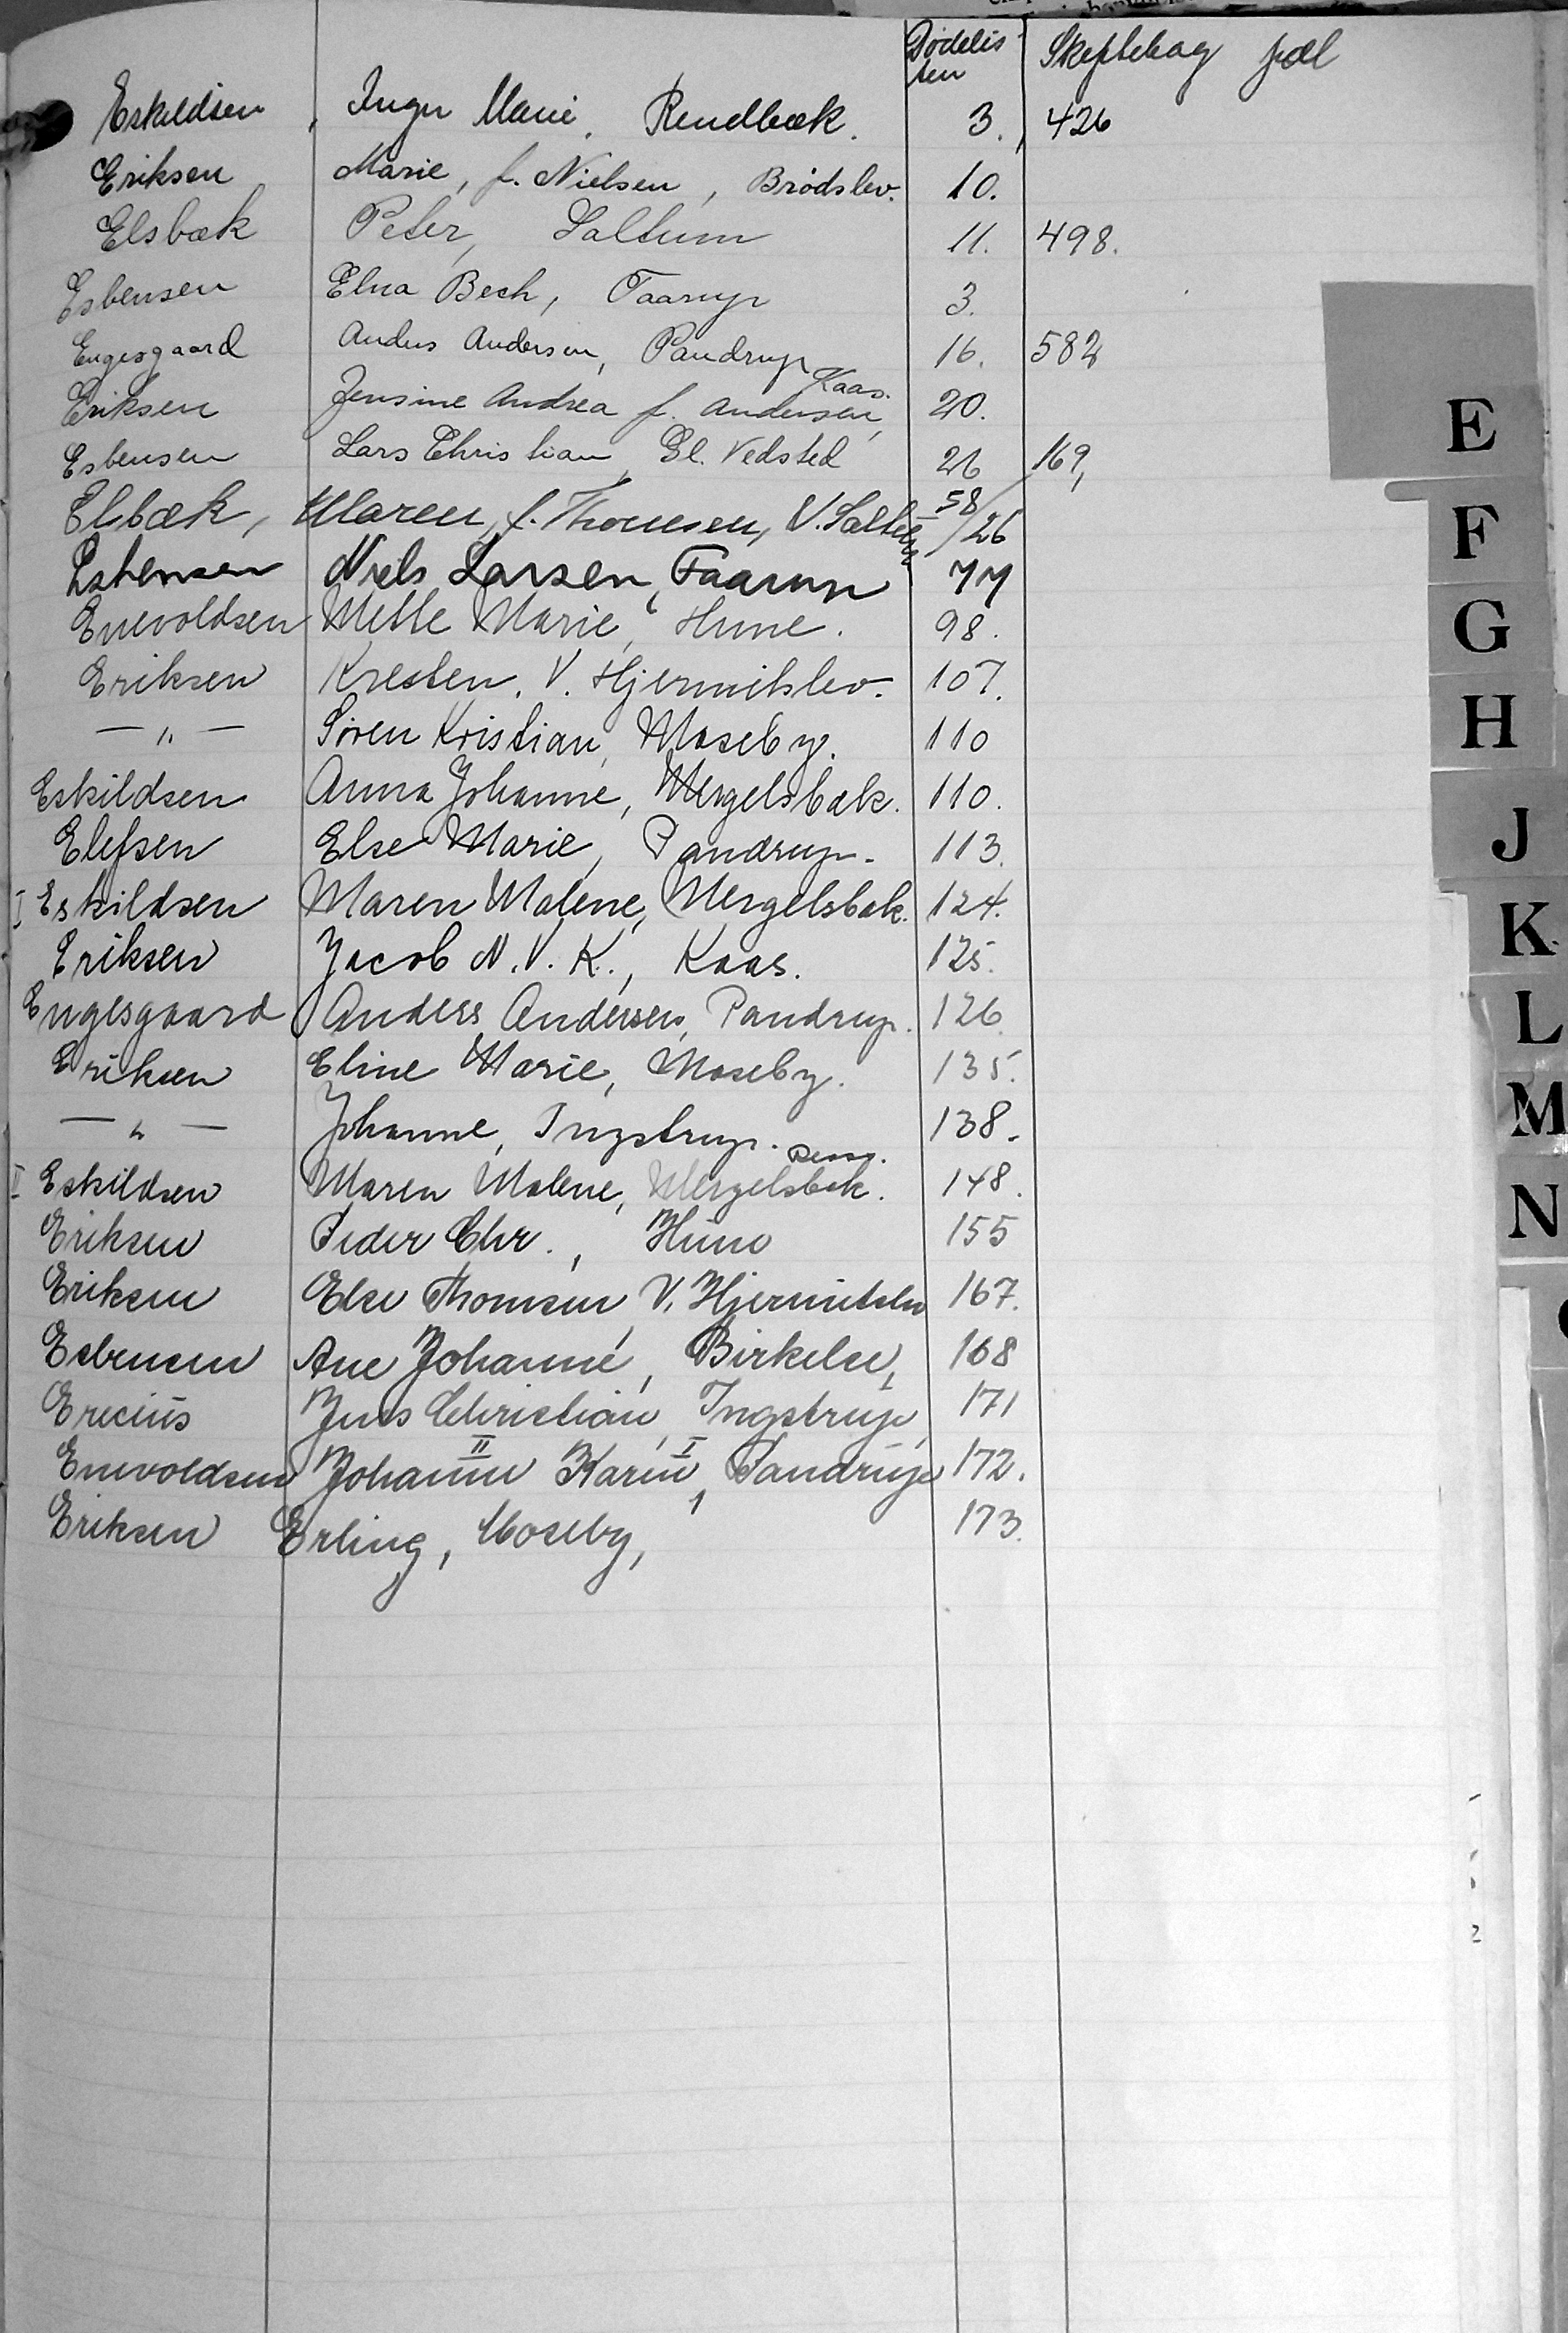 Dødelis Skiftebog fol
ten
Eskildsen, Inger Marie, Rendbæk. 3. 426
Eriksen Marie, f. Nielsen, Brødslev. 10.
Elsbæk Peter, Saltum 11. 498.
Esbensen Elna Bech, Taarup 3.
Engesgaard Anders Andersen, Pandrup 16. 582
Kaas.
Eriksen Jensine Andrea f. Andersen, 20.
Esbensen Lars Christian, Gl. Vedsted 26 169,
Elbæk, Maren, f. Thomsen, V. Saltum 58/26
Esbensen Niels Larsen, Faarup 77
Enevoldsen Mette Marie, Hune. 98.
Eriksen Kresten, V. Hjermitslev. 107.
— " — Søren Kristian, Moseby. 110
Eskildsen Anna Johanne, Mergelsbæk. 110.
Elefsen Else Marie, Pandrup. 113.
I Eskildsen Maren Malene, Mergelsbæk. 124.
Eriksen Jacob N. V. K., Kaas. 125.
Engesgaard Anders Andersen, Pandrup. 126.
Eriksen Eline Marie, Moseby. 135.
— " — Johanne, Ingstrup. 138.
II Eskildsen Maren Malene, Mergelsbæk. 148.
Eriksen Peder Chr., Hune 155
Eriksen Else Thomsen, V. Hjermitslev 167.
Esbensen Ane Johanne, Birkelse, 168
Erecius Jens Christian, Ingstrup, 171
II I
Enevoldsen Johanne Karen, Pandrup 172.
Eriksen Erling, Moseby, 173.
E
F
G
H
J
K
L
M
N